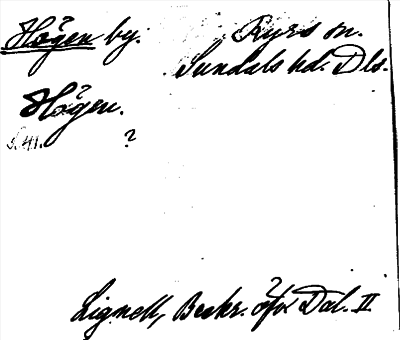 Högen by. Ryrs sn.
Sundals hd. Dls.
Högen.
S. 41. ?
Lignell, Beskr. öfv. Dal. II